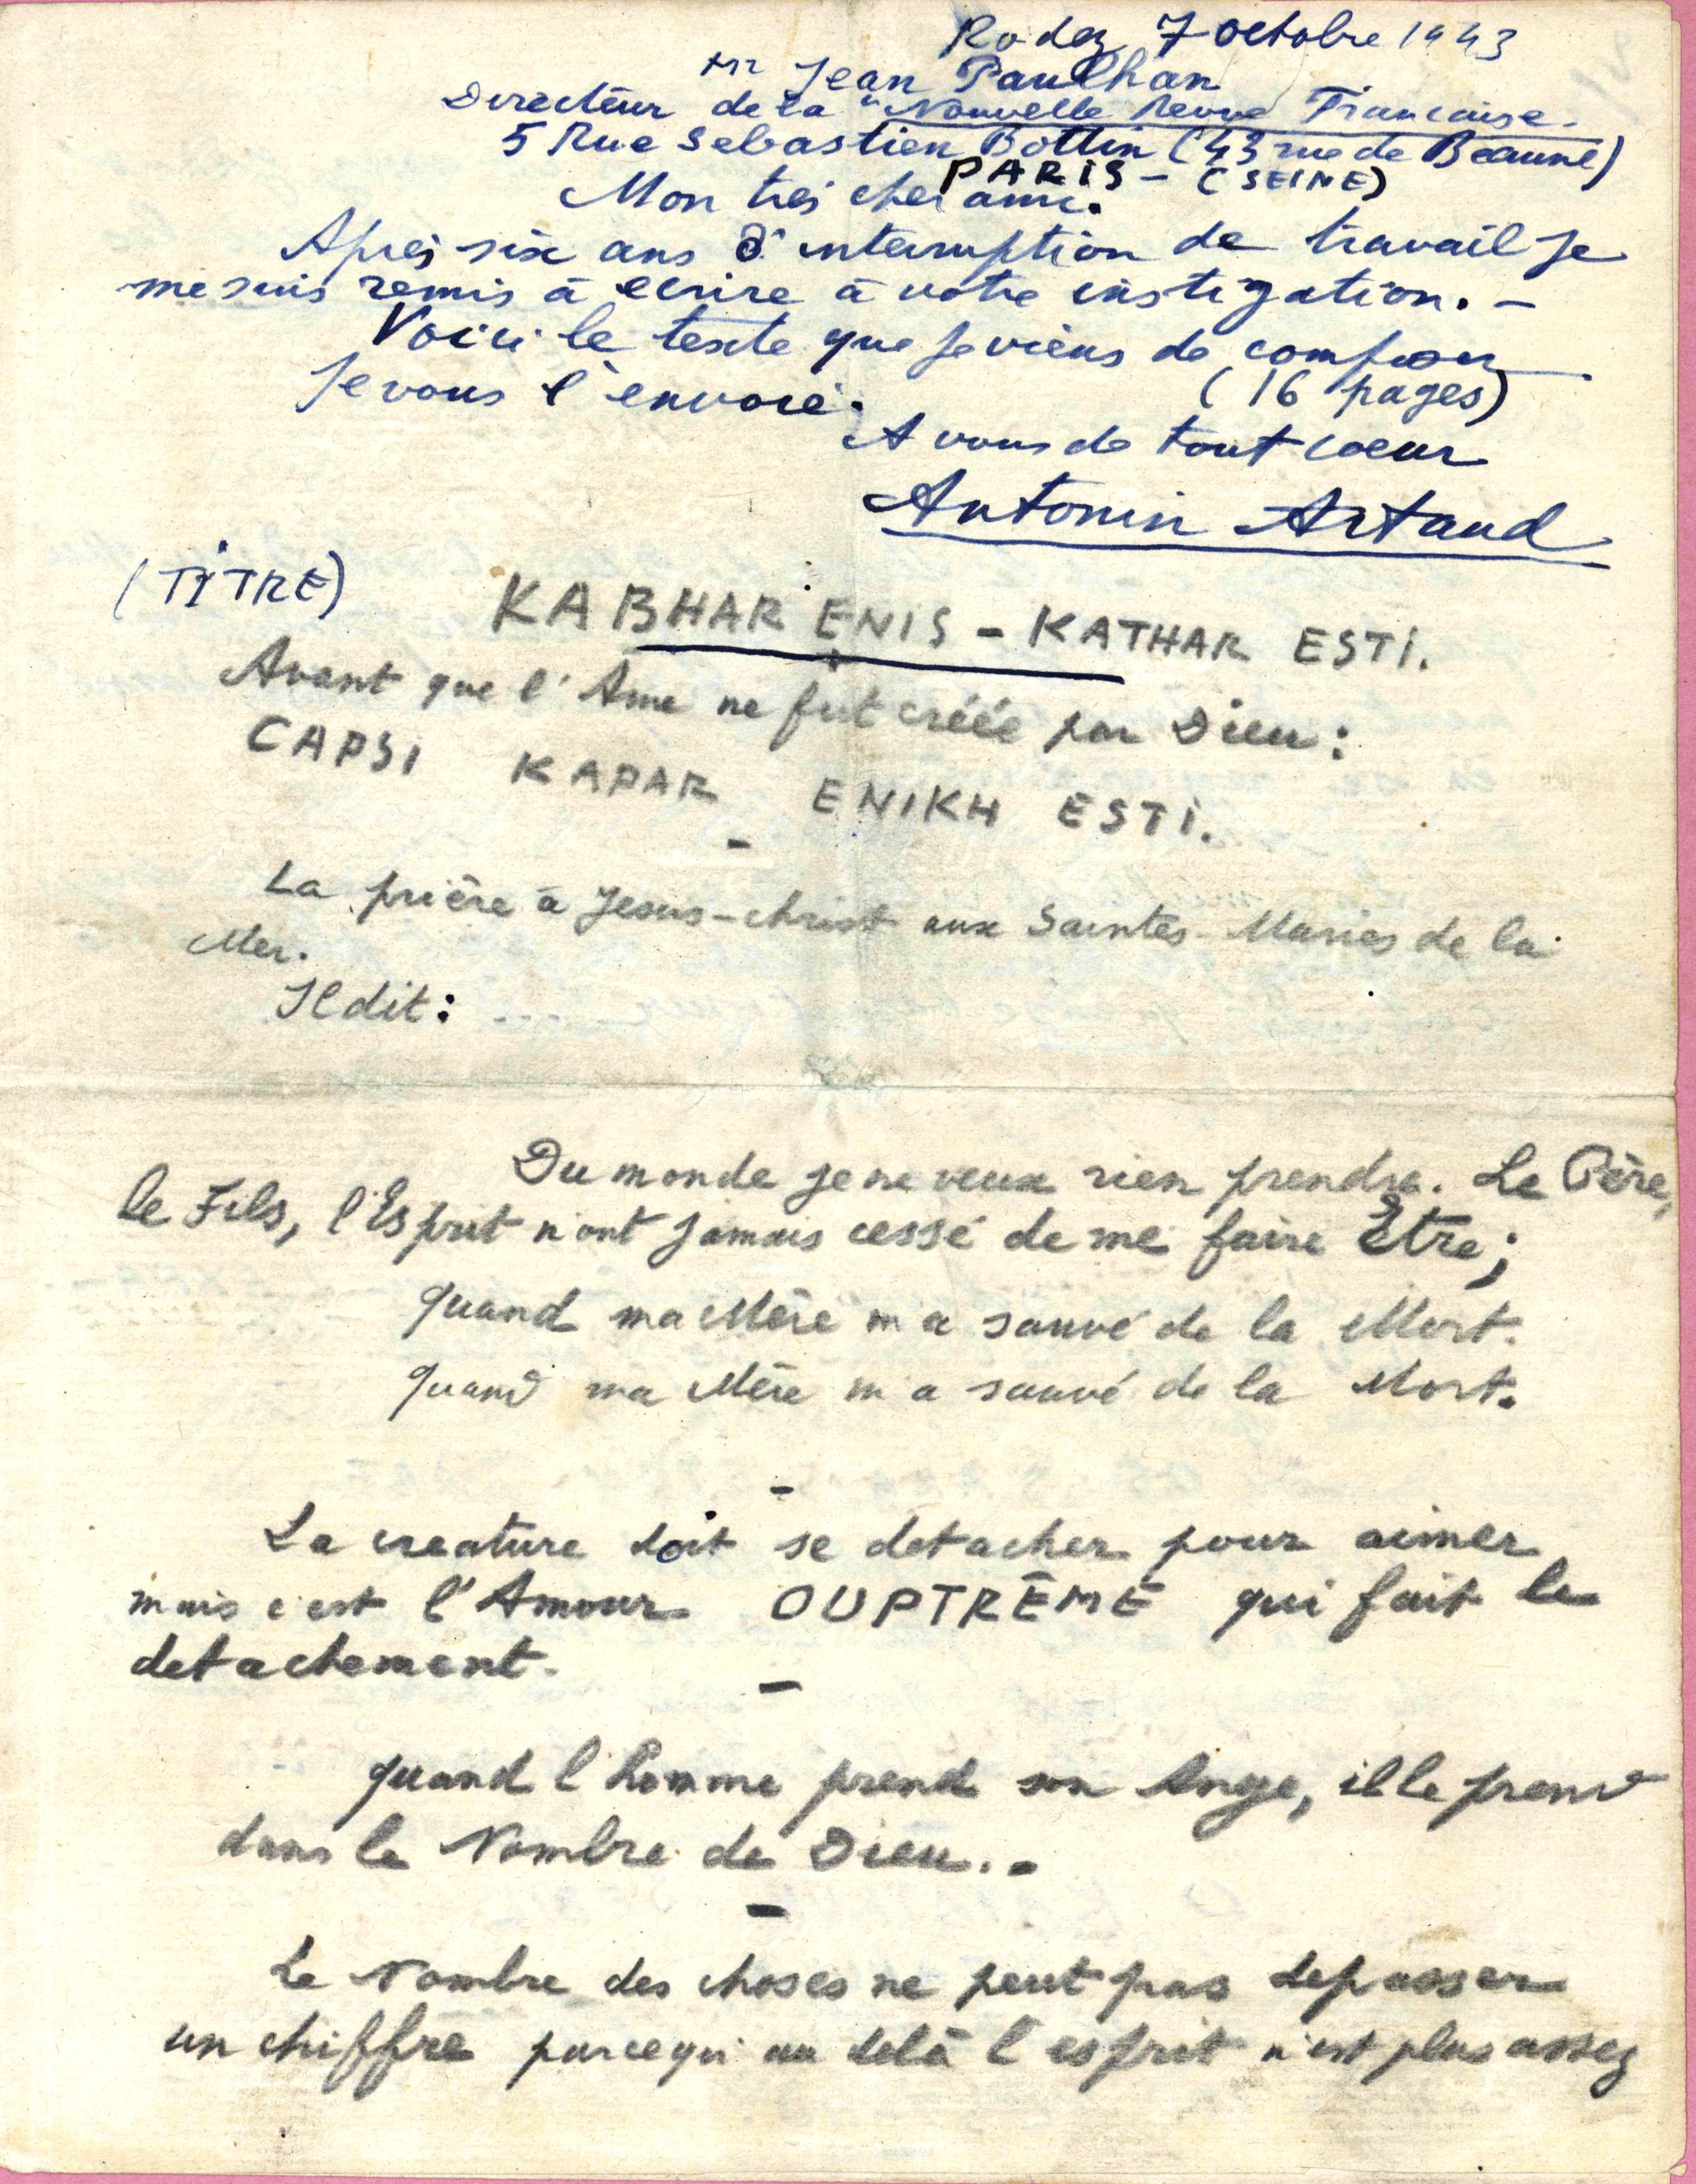 Rodez 7 octobre 1943
Mr Jean Paulhan
Directeur de la "Nouvelle Revue Francaise.
5 Rue Sebastien Bottin (43 rue de Beaune)
PARIS - (SEINE)
Mon tres cher ami.
Après six ans d'interruption de travail je
me suis remis à ecrire à votre instigation. -
Voici le texte que je viens de composer
(16 pages)
Je vous l'envoie.
A vous de tout coeur
Antonin Artaud
(TITRE) KABHAR ENIS - KATHAR ESTI.
Avant que l'Ame ne fut créée par Dieu:
CAPSI KAPAR ENIKH ESTI.
-
La prière à Jesus-christ aux Saintes-Maries de la
Mer.
Il dit: ....
Du monde je ne veux rien prendre. Le Père,
le Fils, l'Esprit n'ont jamais cessé de me faire Etre;
quand ma Mère m'a sauvé de la Mort.
quand ma Mère m'a sauvé de la Mort.
-
La creature doit se detacher pour aimer
mais c'est l'Amour OUPTRÊME qui fait le
detachement.
-
quand l'homme prend son Ange, il le prend
dans le Nombre de Dieu. -
-
Le Nombre des choses ne peut pas depasser
un chiffre parcequ'au delà l'esprit n'est plus assez